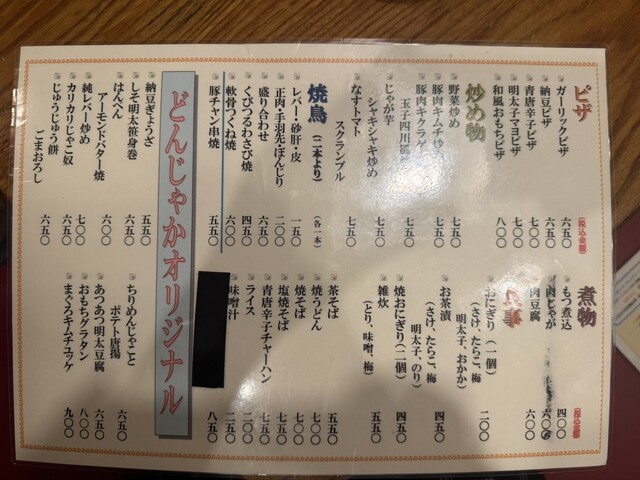 ピザ
(税込金額)
ガーリックピザ 六五〇
納豆ピザ 六五〇
青唐辛子ピザ 七〇〇
明太子マヨピザ 七〇〇
和風おもちピザ 八〇〇
炒め物
野菜炒め 七五〇
豚肉キムチ炒め 七五〇
豚肉キクラゲ
玉子四川風 七五〇
じゃが芋
シャキシャキ炒め 七五〇
なすトマト
スクランブル 七五〇
焼鳥 (二本より) (各一本)
レバー・砂肝・皮 一五〇
正肉・手羽先・ぼんじり 二〇〇
盛り合わせ 六五〇
くびつるわさび焼 四五〇
軟骨つくね焼 六〇〇
豚チャン串焼 五五〇
どんじゃかオリジナル
納豆ぎょうざ 五五〇
しそ明太笹身巻 六〇〇
はんぺん
アーモンドバター焼 六五〇
純レバー炒め 七〇〇
カリカリじゃこ奴 六五〇
じゅうじゅう餅
ごまおろし 六五〇
煮物
(税込金額)
もつ煮込 四〇〇
肉じゃが
肉豆腐 六〇〇
食事
おにぎり(一個)
(さけ、たらこ、梅
明太子、おかか) 二〇〇
お茶漬
(さけ、たらこ、梅
明太子、のり) 四五〇
焼おにぎり(二個) 四五〇
雑炊
(とり、味噌、梅) 五五〇
茶そば 五五〇
焼うどん 七〇〇
焼そば 七〇〇
塩焼そば 七五〇
青唐辛子チャーハン 七五〇
ライス 二〇〇
味噌汁 二五〇
八五〇
ちりめんじゃこと
ポテト唐揚 六五〇
あつあつ明太豆腐 六五〇
おもちグラタン 八〇〇
まぐろキムチユッケ 九〇〇